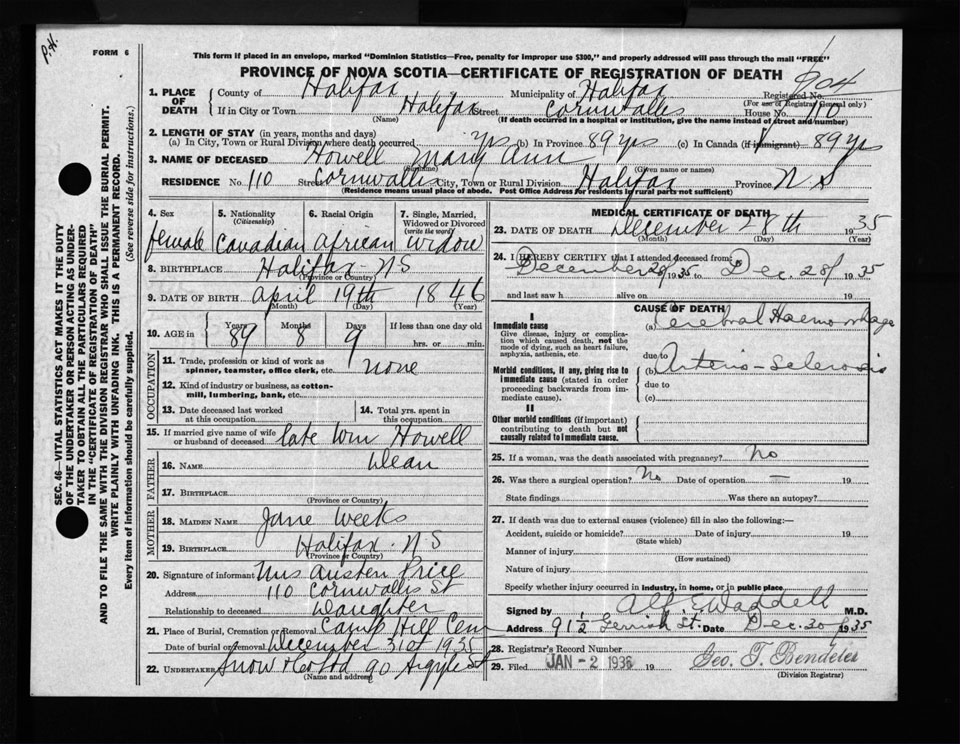 P.H.
FORM 6
This form if placed in an envelope, marked "Dominion Statistics—Free, penalty for improper use $300," and properly addressed will pass through the mail "FREE"
PROVINCE OF NOVA SCOTIA—CERTIFICATE OF REGISTRATION OF DEATH
904
1. PLACE OF DEATH County of Halifax Municipality of Halifax Registered No.
(For use of Registrar General only)
If in City or Town Halifax Street Cornwallis House No. 110
(Name) (If death occurred in a hospital or institution, give the name instead of street and number)
2. LENGTH OF STAY (in years, months and days)
(a) In City, Town or Rural Division where death occurred yrs (b) In Province 89 yrs (c) In Canada (if immigrant) 89 yrs
3. NAME OF DECEASED Howell Mary Ann
(Surname) (Given name or names)
RESIDENCE No. 110 Street Cornwallis City, Town or Rural Division Halifax Province N S
(Residence means usual place of abode. Post Office Address for residents in rural parts not sufficient)
4. Sex female
5. Nationality (Citizenship) Canadian
6. Racial Origin African
7. Single, Married, Widowed or Divorced (write the word) widow
8. BIRTHPLACE Halifax NS
(Province or Country)
9. DATE OF BIRTH April 19th 1846
(Month) (Day) (Year)
10. AGE in Years 89 Months 8 Days 9 If less than one day old
hrs. or min.
OCCUPATION
11. Trade, profession or kind of work as spinner, teamster, office clerk, etc. none
12. Kind of industry or business, as cotton-mill, lumbering, bank, etc.
13. Date deceased last worked at this occupation
14. Total yrs. spent in this occupation
15. If married give name of wife or husband of deceased late Wm Howell
FATHER
16. NAME Dean
17. BIRTHPLACE
(Province or Country)
MOTHER
18. MAIDEN NAME Jane Weeks
19. BIRTHPLACE Halifax NS
(Province or Country)
20. Signature of informant Mrs Austen Price
Address 110 Cornwallis St
Relationship to deceased Daughter
21. Place of Burial, Cremation or Removal Camp Hill Cem
Date of burial or removal December 31st 1935
22. UNDERTAKER Snow & Co Ltd 90 Argyle St
(Name and address)
MEDICAL CERTIFICATE OF DEATH
23. DATE OF DEATH December 28th 1935
(Month) (Day) (Year)
24. I HEREBY CERTIFY that I attended deceased from
December 1935 to Dec. 28 1935
and last saw h alive on 19
CAUSE OF DEATH
I
Immediate cause
Give disease, injury or complication which caused death, not the mode of dying, such as heart failure, asphyxia, asthenia, etc.
(a) Cerebral Haemorrhage
due to
Morbid conditions, if any, giving rise to immediate cause (stated in order proceeding backwards from immediate cause).
(b) Arterio-Sclerosis
due to
(c)
II
Other morbid conditions (if important) contributing to death but not causally related to immediate cause.
25. If a woman, was the death associated with pregnancy? No
26. Was there a surgical operation? No Date of operation — 19
State findings Was there an autopsy?
27. If death was due to external causes (violence) fill in also the following:—
Accident, suicide or homicide? Date of injury 19
(State which)
Manner of injury
(How sustained)
Nature of injury
Specify whether injury occurred in industry, in home, or in public place.
Signed by Alf. E Waddell M.D.
Address 91½ Gerrish St. Date Dec. 30 1935
28. Registrar's Record Number
29. Filed JAN -2 1936 19 Geo. T. Bendeler
(Division Registrar)
SEC. 46—VITAL STATISTICS ACT MAKES IT THE DUTY
OF THE UNDERTAKER OR PERSON ACTING AS UNDER-
TAKER TO OBTAIN ALL THE PARTICULARS REQUIRED
IN THE "CERTIFICATE OF REGISTRATION OF DEATH"
AND TO FILE THE SAME WITH THE DIVISION REGISTRAR WHO SHALL ISSUE THE BURIAL PERMIT.
WRITE PLAINLY WITH UNFADING INK. THIS IS A PERMANENT RECORD.
Every item of information should be carefully supplied. (See reverse side for instructions.)